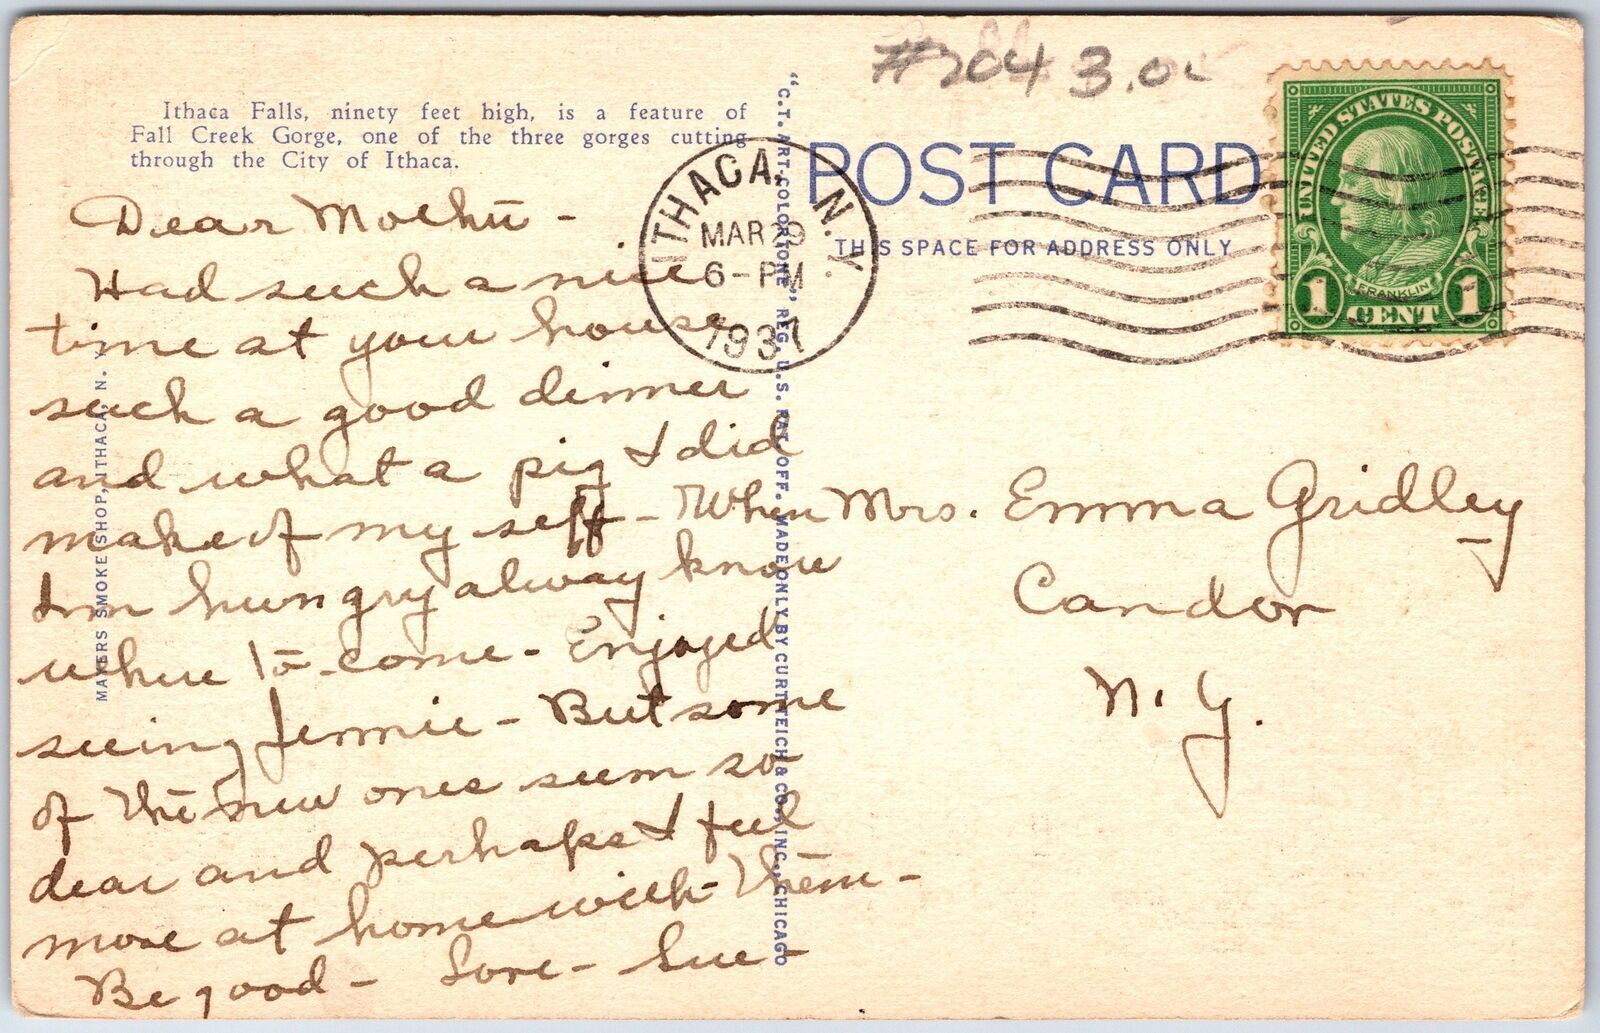 #204 3.00
Ithaca Falls, ninety feet high, is a feature of
Fall Creek Gorge, one of the three gorges cutting
through the City of Ithaca.
POST CARD
THIS SPACE FOR ADDRESS ONLY
ITHACA, N.Y.
MAR 29
6-PM
1937
UNITED STATES POSTAGE
FRANKLIN
1 CENT 1
Dear
Had such a nice
time at your house
such a good dinner
and what a pig I did
make of my self - When
I'm hungry alway know
where to come - Enjoyed
seeing Jennie - But some
of the new ones seem so
dear and perhaps I feel
more at home with them -
Be good - Love - Sue -
Mrs. Emma Gridley
Candor
N. Y.
MAYERS SMOKE SHOP, ITHACA, N. Y.
"C.T. ART-COLORTONE" REG. U.S. PAT. OFF. MADE ONLY BY CURT TEICH & CO., INC., CHICAGO